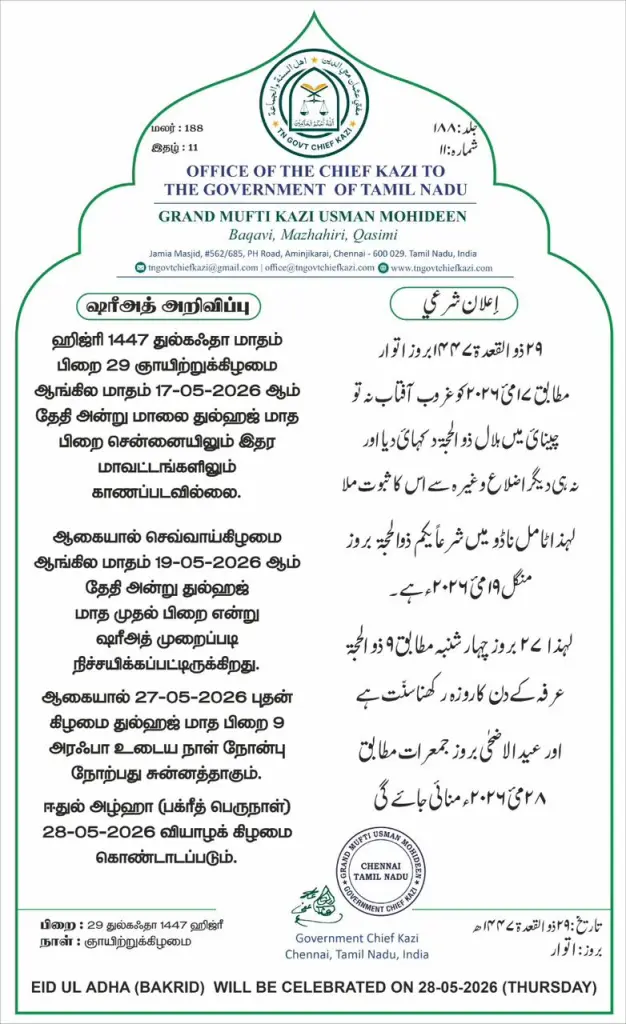 مفتی عثمان محی الدین
اهل السنة والجماعة
TN GOVT CHIEF KAZI
மலர் : 188
இதழ் : 11
جلد: ١٨٨
شماره: ١١
OFFICE OF THE CHIEF KAZI TO
THE GOVERNMENT OF TAMIL NADU
GRAND MUFTI KAZI USMAN MOHIDEEN
Baqavi, Mazhahiri, Qasimi
Jamia Masjid, #562/685, PH Road, Aminjikarai, Chennai - 600 029. Tamil Nadu, India
tngovtchiefkazi@gmail.com | office@tngovtchiefkazi.com www.tngovtchiefkazi.com
ஷரீஅத் அறிவிப்பு
ஹிஜ்ரி 1447 துல்கஃதா மாதம்
பிறை 29 ஞாயிற்றுக்கிழமை
ஆங்கில மாதம் 17-05-2026 ஆம்
தேதி அன்று மாலை துல்ஹஜ் மாத
பிறை சென்னையிலும் இதர
மாவட்டங்களிலும்
காணப்படவில்லை.
ஆகையால் செவ்வாய்கிழமை
ஆங்கில மாதம் 19-05-2026 ஆம்
தேதி அன்று துல்ஹஜ்
மாத முதல் பிறை என்று
ஷரீஅத் முறைப்படி
நிச்சயிக்கப்பட்டிருக்கிறது.
ஆகையால் 27-05-2026 புதன்
கிழமை துல்ஹஜ் மாத பிறை 9
அரஃபா உடைய நாள் நோன்பு
நோற்பது சுன்னத்தாகும்.
ஈதுல் அழ்ஹா (பக்ரீத் பெருநாள்)
28-05-2026 வியாழக் கிழமை
கொண்டாடப்படும்.
إعلان شرعي
٢٩ ذو القعدة ١٤٤٧ بروز اتوار
مطابق ١٧ مئ ٢٠٢٦ کو غروب آفتاب نہ تو
چینائ میں ہلال ذوالحجۃ دکہائ دیا اور
نہ ہی دیگر اضلاع وغیرہ سے اس کا ثبوت ملا
لہذا ٹامل ناڈو میں شرعاً یکم ذوالحجۃ بروز
منگل ١٩ مئ ٢٠٢٦ء ہے۔
لہذا ٢٧ بروز چہار شنبہ مطابق ٩ ذوالحجۃ
عرفہ کے دن کا روزہ رکھنا سنّت ہے
اور عید الاضحٰی بروز جمعرات مطابق
٢٨ مئ ٢٠٢٦ء منائی جائے گی
GRAND MUFTI USMAN MOHIDEEN
CHENNAI
TAMIL NADU
GOVERNMENT CHIEF KAZI
பிறை : 29 துல்கஃதா 1447 ஹிஜ்ரீ
நாள் : ஞாயிற்றுக்கிழமை
Government Chief Kazi
Chennai, Tamil Nadu, India
تاریخ: ٢٩ ذو القعدة ١٤٤٧ھ
بروز: اتوار
EID UL ADHA (BAKRID) WILL BE CELEBRATED ON 28-05-2026 (THURSDAY)